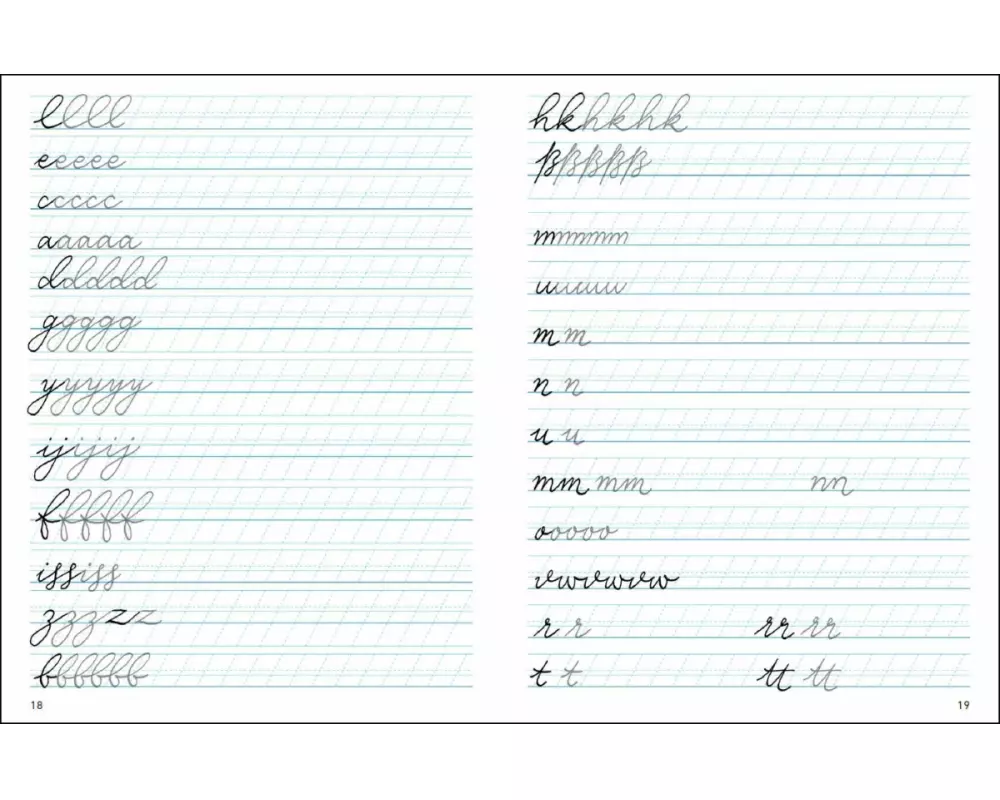 llll
eeeee
ccccc
aaaaa
ddddd
ggggg
yyyyy
ijijij
fffff
ississ
zzzzz
bbbbb
18
hkhkhk
ßßßßß
mmmm
uuuu
m m
n n
u u
mm mm nn
ooooo
vwvwvw
r r rr rr
t t tt tt
19